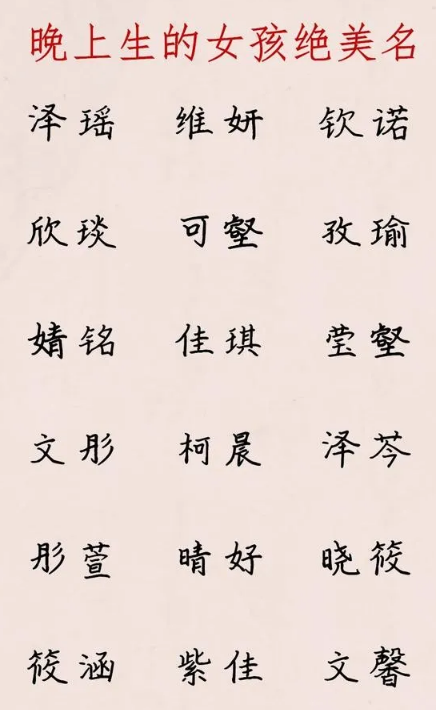 晚上生的女孩绝美名
泽瑶 维妍 钦诺
欣琰 可壑 孜瑜
婧铭 佳琪 莹壑
文彤 柯晨 泽芩
彤萱 晴好 晓筱
筱涵 紫佳 文馨